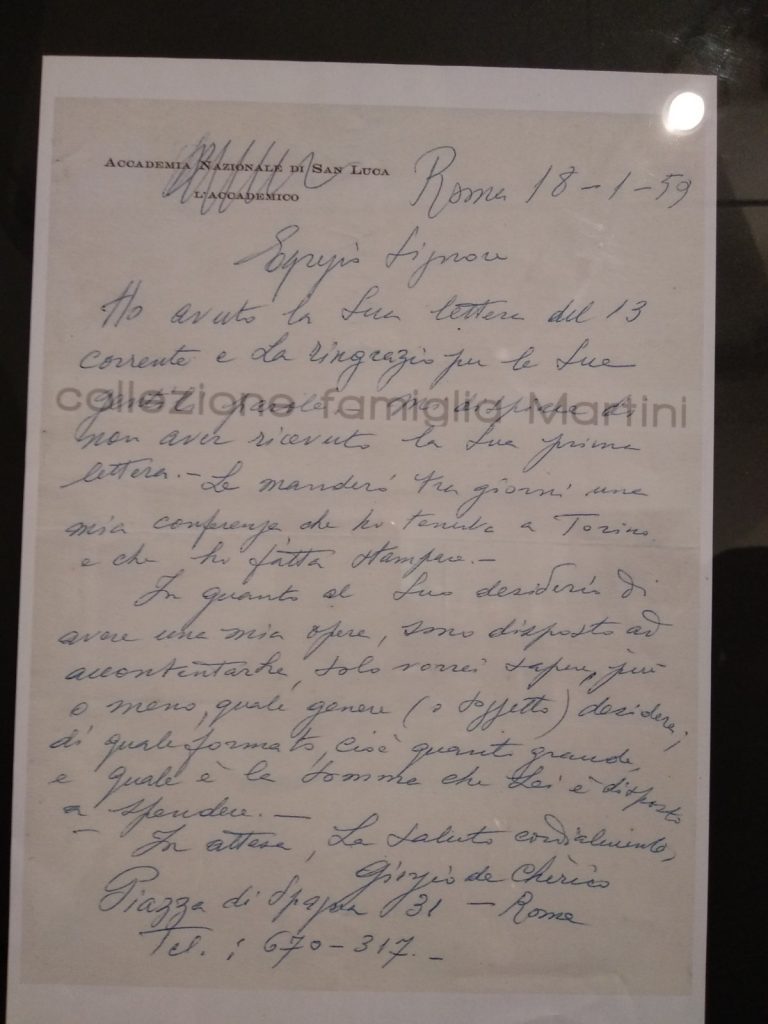 ACCADEMIA NAZIONALE DI SAN LUCA
L'ACCADEMICO
Roma 18-1-59
Egregio Signore
Ho avuto la Sua lettera del 13
corrente e La ringrazio per le Sue
gentili parole. Mi dispiace di
collezione famiglia Martini
non aver ricevuto la Sua prima
lettera.- Le manderò tra giorni una
mia conferenza che ho tenuta a Torino
e che ho fatta stampare.-
In quanto al Suo desiderio di
avere una mia opera, sono disposto ad
accontentarla, solo vorrei sapere, più
o meno, quale genere (o soggetto) desidera;
di quale formato, cioè quanto grande,
e quale è la somma che Lei è disposto
a spendere.-
In attesa, La saluto cordialmente,
Giorgio de Chirico
Piazza di Spagna 31 - Roma
Tel.: 670-317.-